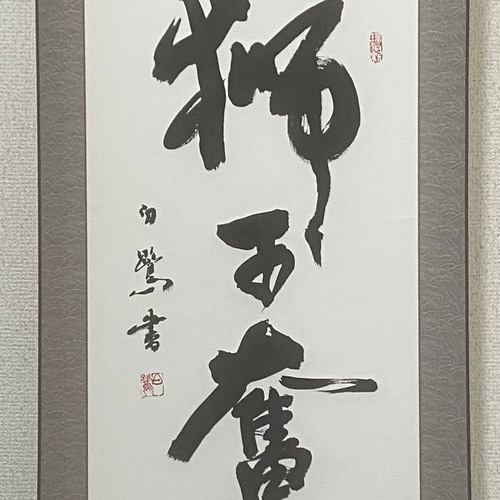 獅子奮
白鷺書